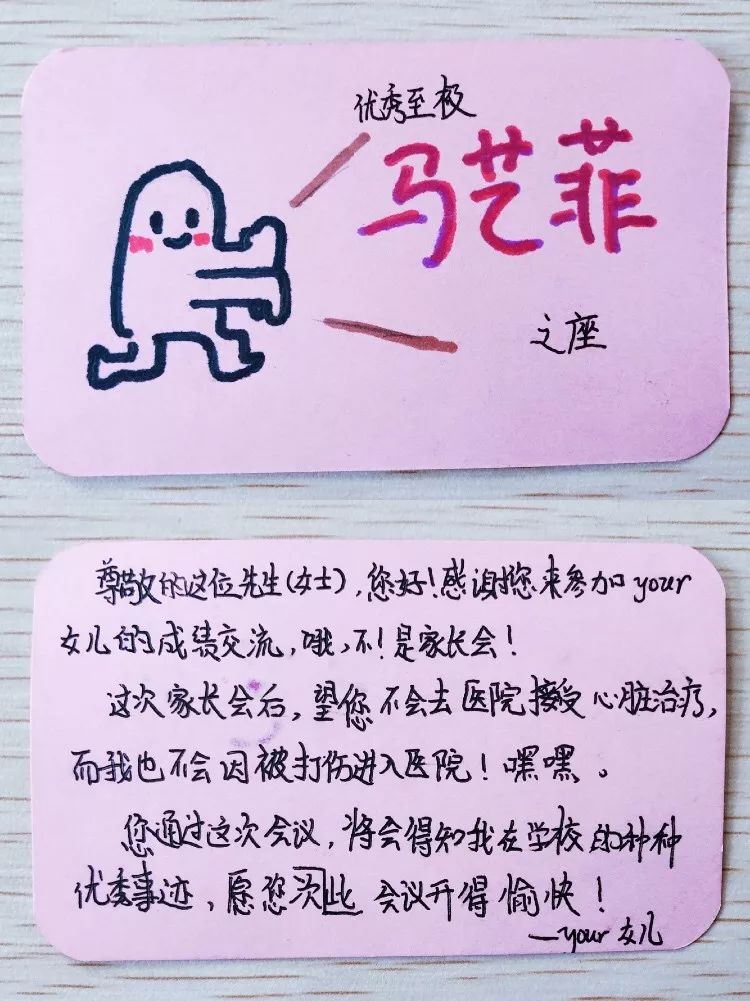 优秀至极
马艺菲
之座
尊敬的这位先生(女士),您好!感谢您来参加your
女儿的成绩交流,哦,不!是家长会!
这次家长会后,望您不会去医院接受心脏治疗,
而我也不会因被打伤进入医院!嘿嘿。
您通过这次会议,将会得知我在学校的种种
优秀事迹,愿您次此会议开得愉快!
—your 女儿